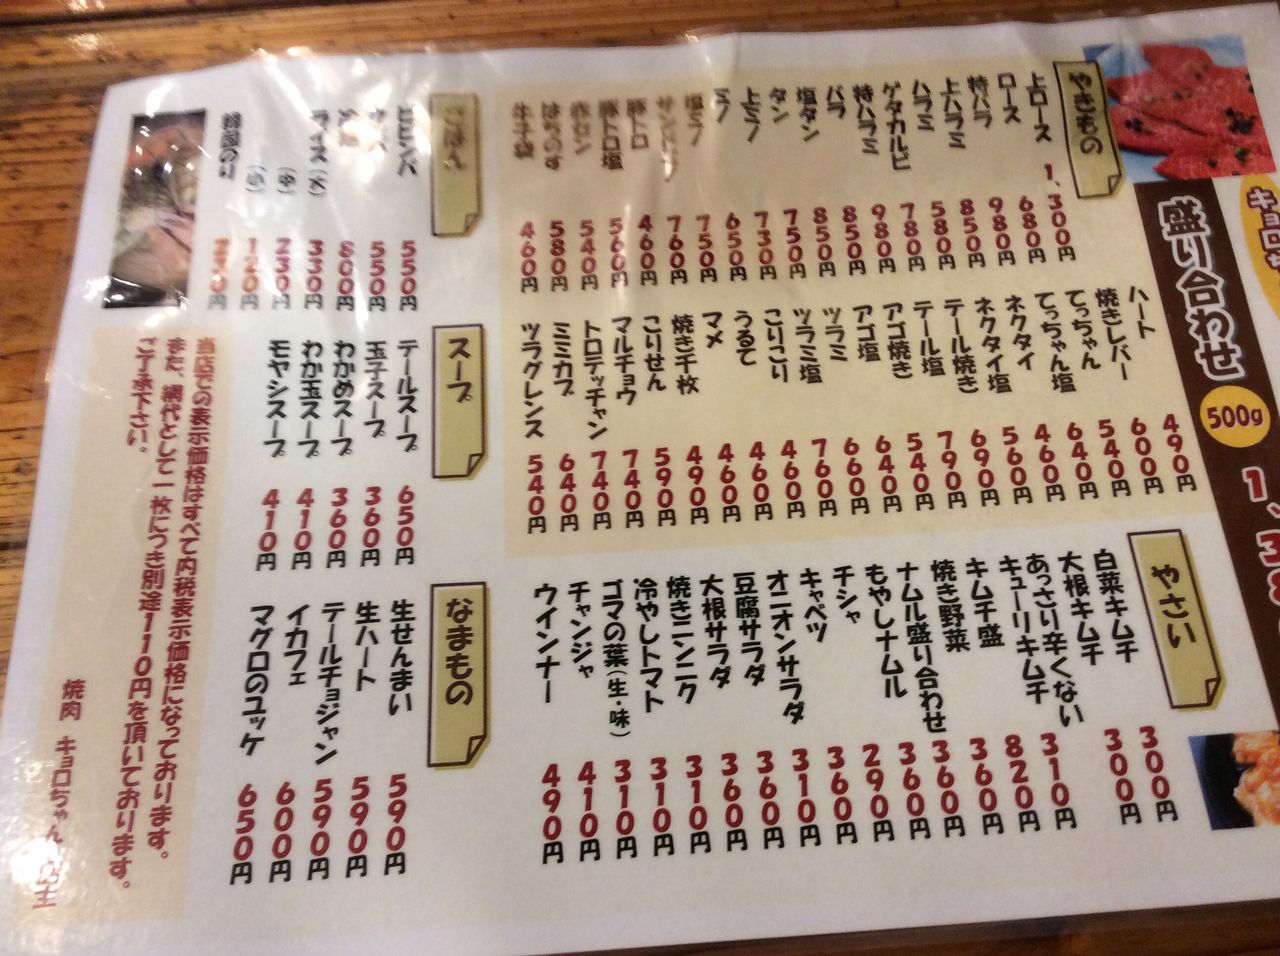 盛り合わせ
500g
やきもの
上ロース 1,300円
ロース 680円
特バラ 980円
上ハラミ 850円
ハラミ 580円
ゲタカルビ 780円
特ハラミ 980円
バラ 850円
塩タン 850円
タン 750円
上ミノ 730円
ミノ 650円
塩ミノ 750円
760円
豚トロ 460円
豚トロ塩 560円
赤セン 540円
はちのす 580円
牛子袋 460円
ハート 490円
焼きレバー 600円
てっちゃん 540円
てっちゃん塩 640円
ネクタイ 460円
ネクタイ塩 560円
テール焼き 690円
テール塩 790円
アゴ焼き 540円
アゴ塩 640円
ツラミ 660円
ツラミ塩 760円
こりこり 460円
うるて 460円
マメ 460円
焼き千枚 490円
こりせん 590円
マルチョウ 740円
トロテッチャン 740円
ミミカブ 640円
ツラグレンス 540円
やさい
白菜キムチ 300円
大根キムチ 300円
あっさり辛くない
キューリキムチ 310円
キムチ盛 820円
焼き野菜 360円
ナムル盛り合わせ 360円
もやしナムル 360円
チシャ 290円
キャベツ 360円
オニオンサラダ 310円
豆腐サラダ 360円
大根サラダ 360円
焼きニンニク 310円
冷やしトマト 310円
ゴマの葉(生・味) 310円
チャンジャ 410円
ウインナー 490円
ごはん
ビビンバ 550円
550円
800円
ライス(大) 330円
(中) 230円
(小) 120円
韓国のり
スープ
テールスープ 650円
玉子スープ 360円
わかめスープ 360円
わか玉スープ 410円
モヤシスープ 410円
なまもの
生せんまい 590円
生ハート 590円
テールチョジャン 590円
イカフェ 600円
マグロのユッケ 650円
当店での表示価格はすべて内税表示価格になっております。
また、網代として一枚につき別途110円を頂いております。
ご了承下さい。
焼肉 キョロちゃん